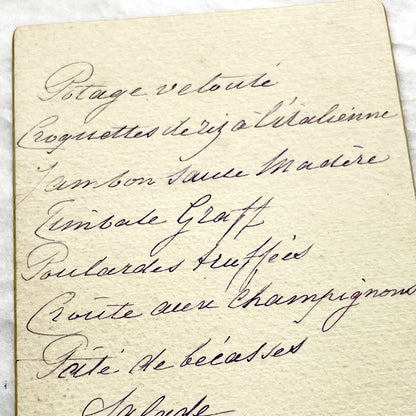 Potage velouté
Croquettes de riz à l'italienne
Jambon sauce Madère
Timbale Graff
Poulardes truffées
Croûte aux champignons
Pâté de bécasses
Salade